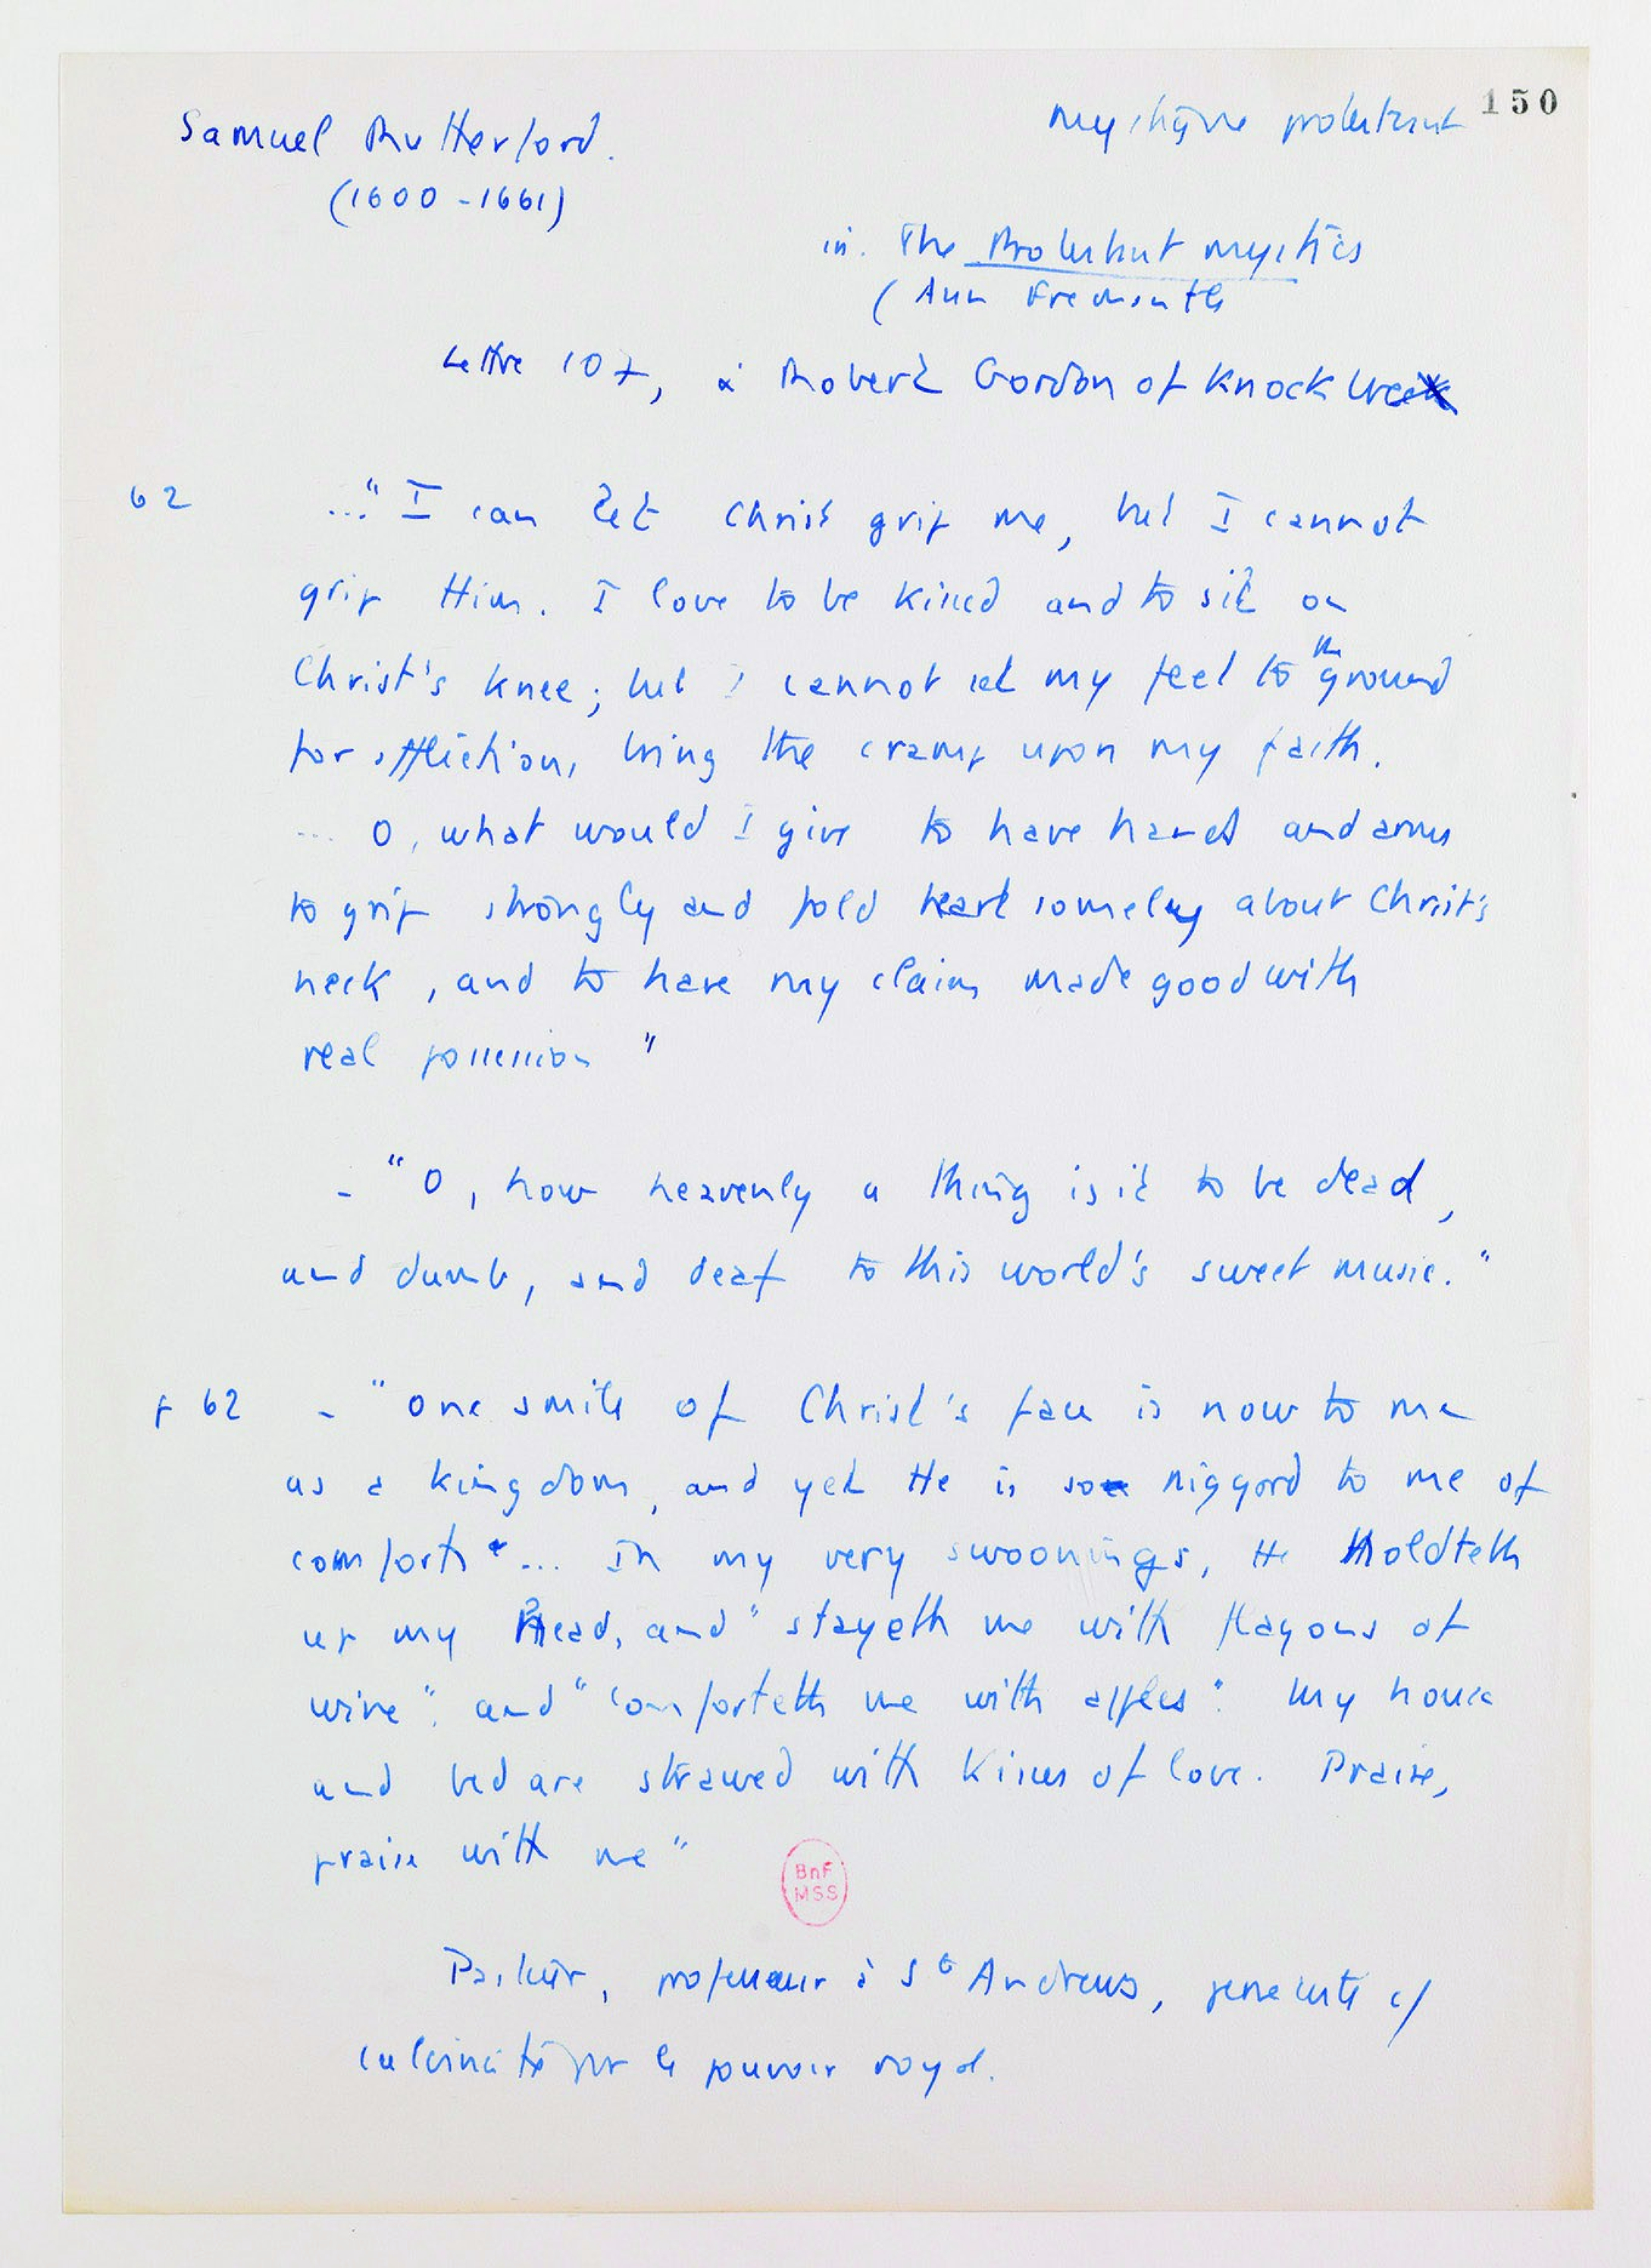 Samuel Rutherford.
(1600-1661)
mystique protestant 150
in. The Protestant mystics
(Ann Fremantle
Lettre 107, à Robert Gordon of Knock
62 ..." I can let Christ grip me, but I cannot
grip Him. I love to be kissed and to sit on
Christ's knee; but I cannot set my feet to the ground
for affliction, bring the cramp upon my faith.
... O, what would I give to have hands and arms
to grip strongly and fold heartsomely about Christ's
neck, and to have my claim made good with
real possession "
- "O, how heavenly a thing is it to be dead,
and dumb, and deaf to this world's sweet music."
p 62 - "One smile of Christ's face is now to me
as a kingdom, and yet He is so niggard to me of
comforts ... In my very swoonings, He Holdteth
up my Head, and "stayeth me with flagons of
wine", and "comforteth me with apples". My house
and bed are strawed with kisses of love. Praise,
praise with me"
BnF
MSS
Pasteur, professeur à St Andrews,
par le pouvoir royal.